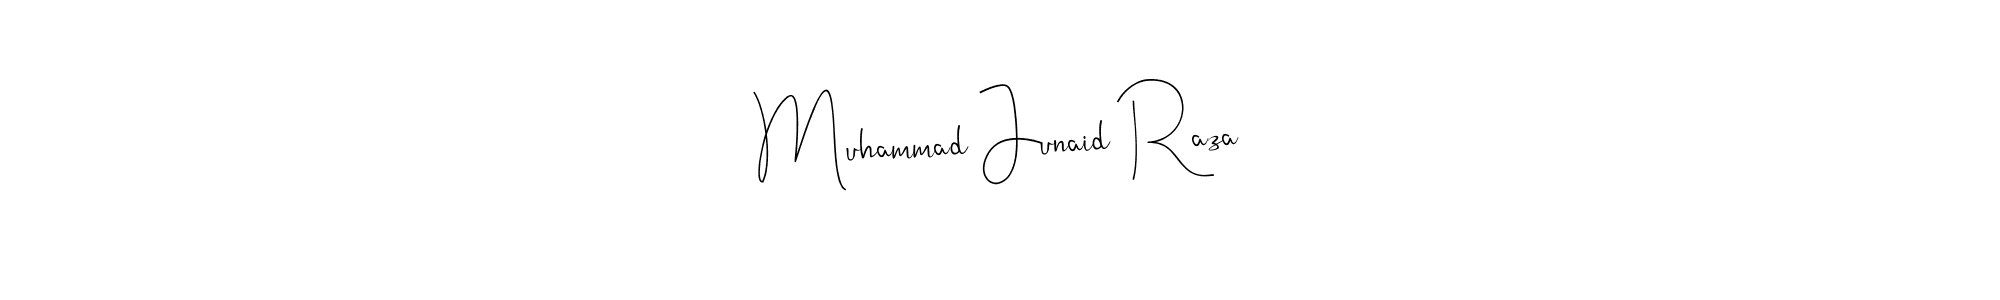 Muhammad Junaid Raza